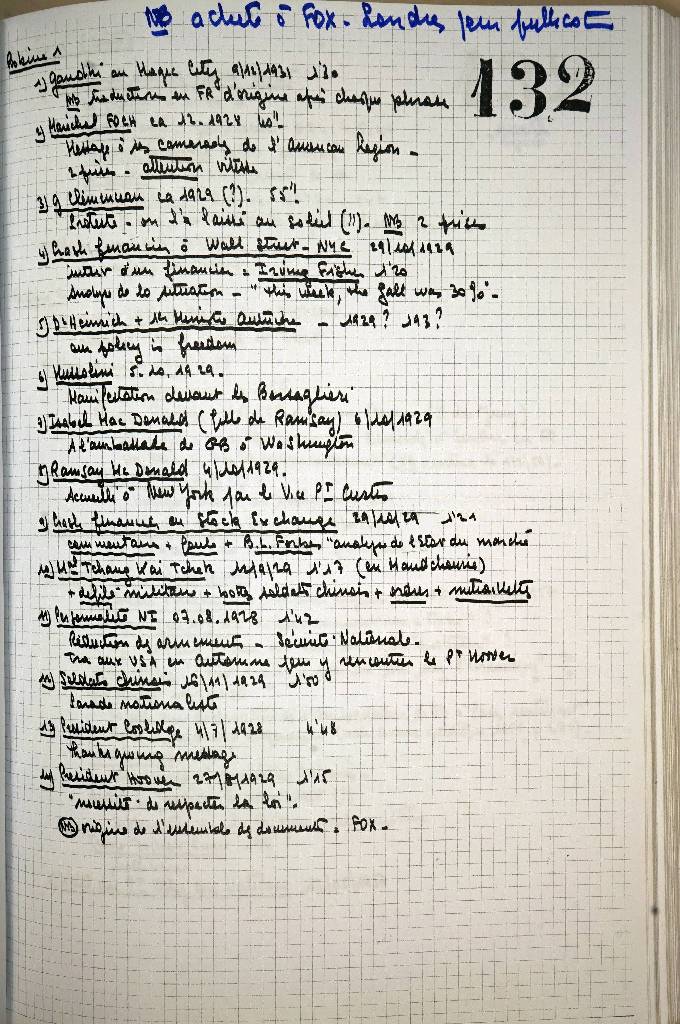 NB acheté à FOX. Londres pour publicat
132
Bobine 1
1) Gandhi au Magic City 9/12/1931 1'30
NB traduction en FR d'origine après chaque phrase
2) Maréchal FOCH ca 12.1928 40"
Message à ses camarades de l'American Legion -
2 prises - attention vitesse
3) G Clémenceau ca 1929 (?). 55"
Proteste - on l'a laissé au soleil (!!). NB 2 prises
4) Crash financier à Wall Street - NYC 29/10/1929
interv d'un financier = Irving Fisher 1'20
Analyse de la situation - "this week, the fall was 30%"-
5) Dr Heinrich + 1er Ministre Autriche - 1929? 193?
our policy is freedom
6) Mussolini 5.10.1929.
Manifestation devant les Bersaglieri
7) Isabel Mac Donald (fille de Ramsay) 6/10/1929
A l'ambassade de GB à Washington
8) Ramsay Mc Donald 4/10/1929.
Accueilli à New York par le Vice Pt Curtis
9) Crash financier au Stock Exchange 29/10/29 1'21
commentaire + foule + B.C. Forbes "analyse de l'Etat du marché
10) Mal Tchang Kai Tchek 12/9/29 1'17 (en Mandchourie)
+ défilé militaire + bottes soldats chinois + ordres + mitraillettes
11) Personnalité NI 07.08.1928 1'42
Réduction des armements - Sécurité Nationale.
Ira aux USA en Automne pour y rencontrer le Pt Hoover
12) Soldats chinois 16/11/1929 1'50
Parade nationaliste
13) President Coolidge 4/7/1928 4'48
Thanksgiving message
14) President Hoover 27/8/1929 1'15
"nécessité de respecter la loi".
NB origine de l'ensemble des documents = FOX -